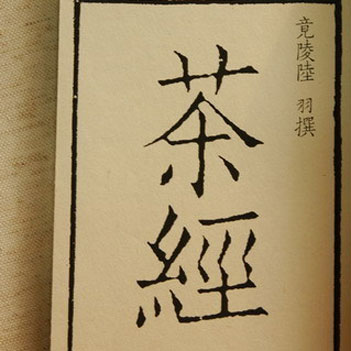 竟陵陸 羽撰
茶經